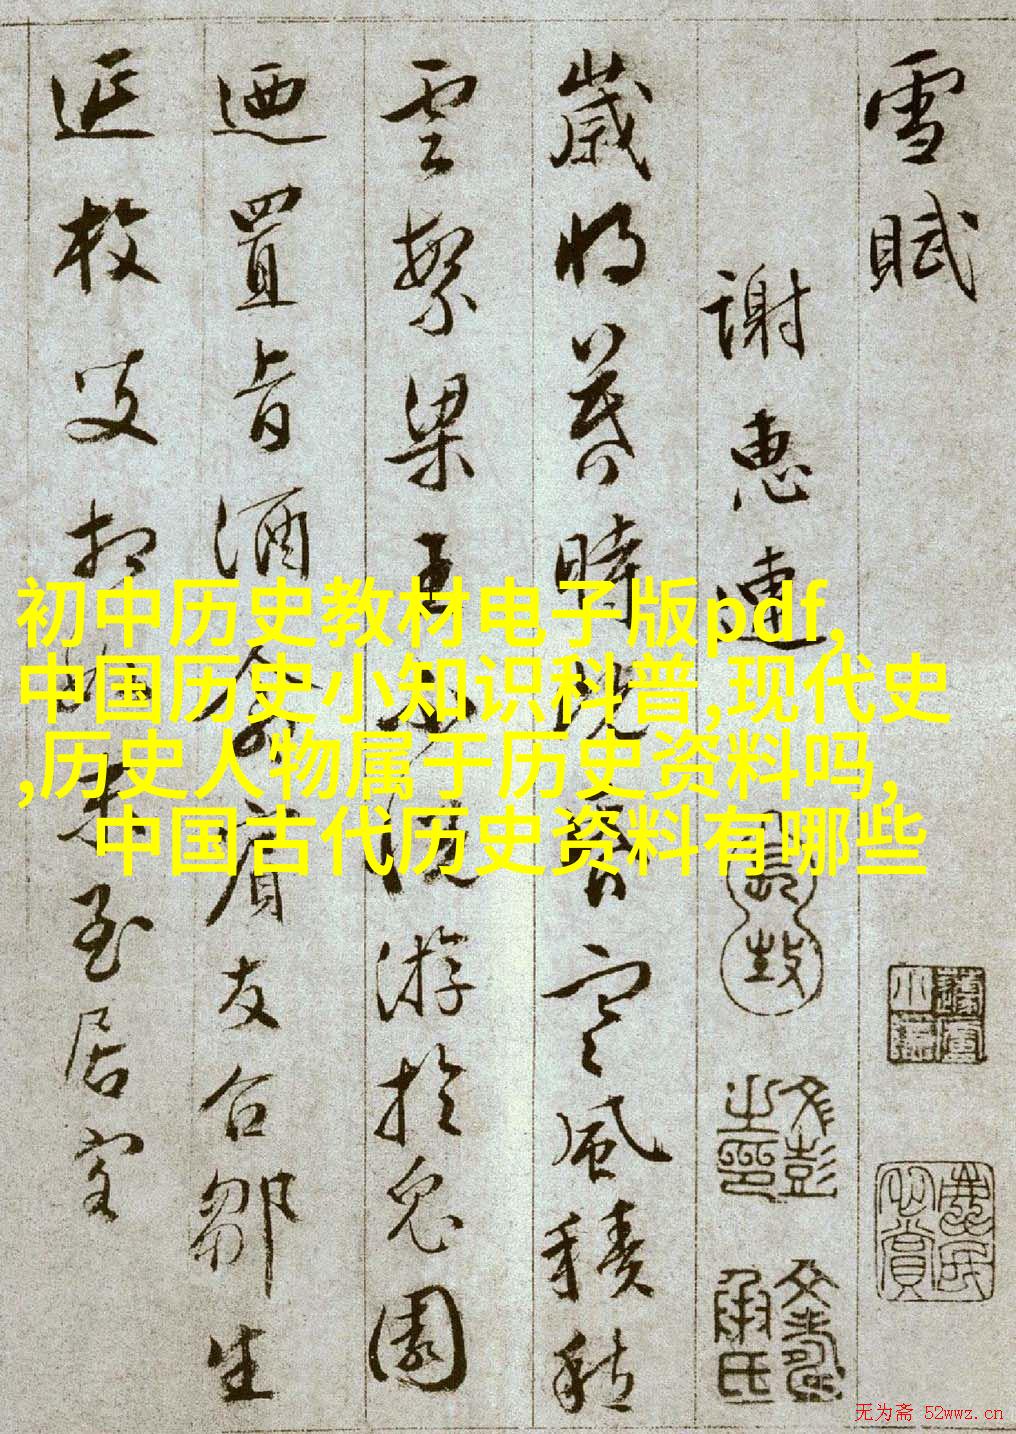 雪賦
謝惠連
歲將暮時既昏寒風積愁
雲繁梁王不悅游於兔園
迺置旨酒命賓友召鄒生
延枚叟相如末至居客
初中历史教材电子版pdf,
中国历史小知识科普,现代史
,历史人物属于历史资料吗,
中国古代历史资料有哪些
文彭之印
文壽承氏
无为斋 52wwz.cn